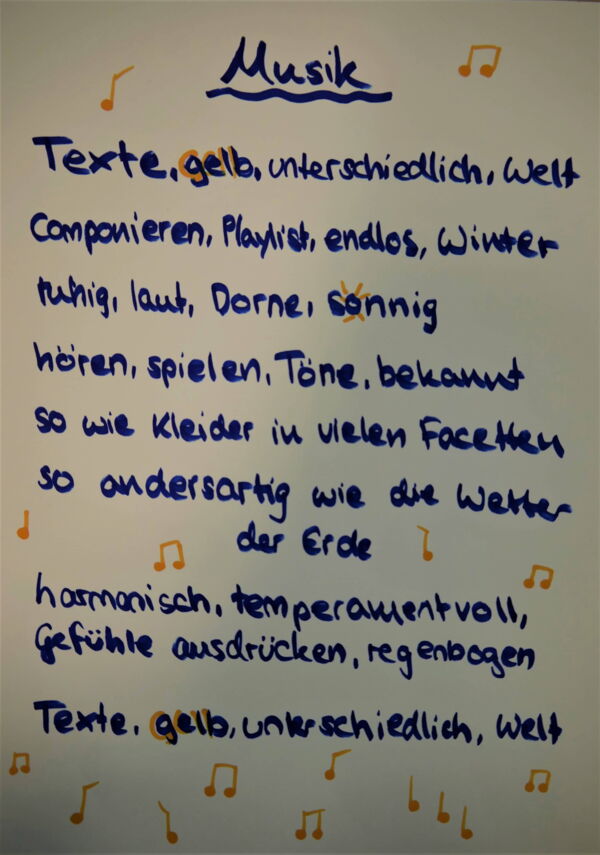 Musik
Texte, gelb, unterschiedlich, Welt
Componieren, Playlist, endlos, Winter
ruhig, laut, Dorne, sonnig
hören, spielen, Töne, bekannt
so wie Kleider in vielen Facetten
so andersartig wie die Wetter
der Erde
harmonisch, temperamentvoll,
Gefühle ausdrücken, regenbogen
Texte, gelb, unterschiedlich, Welt